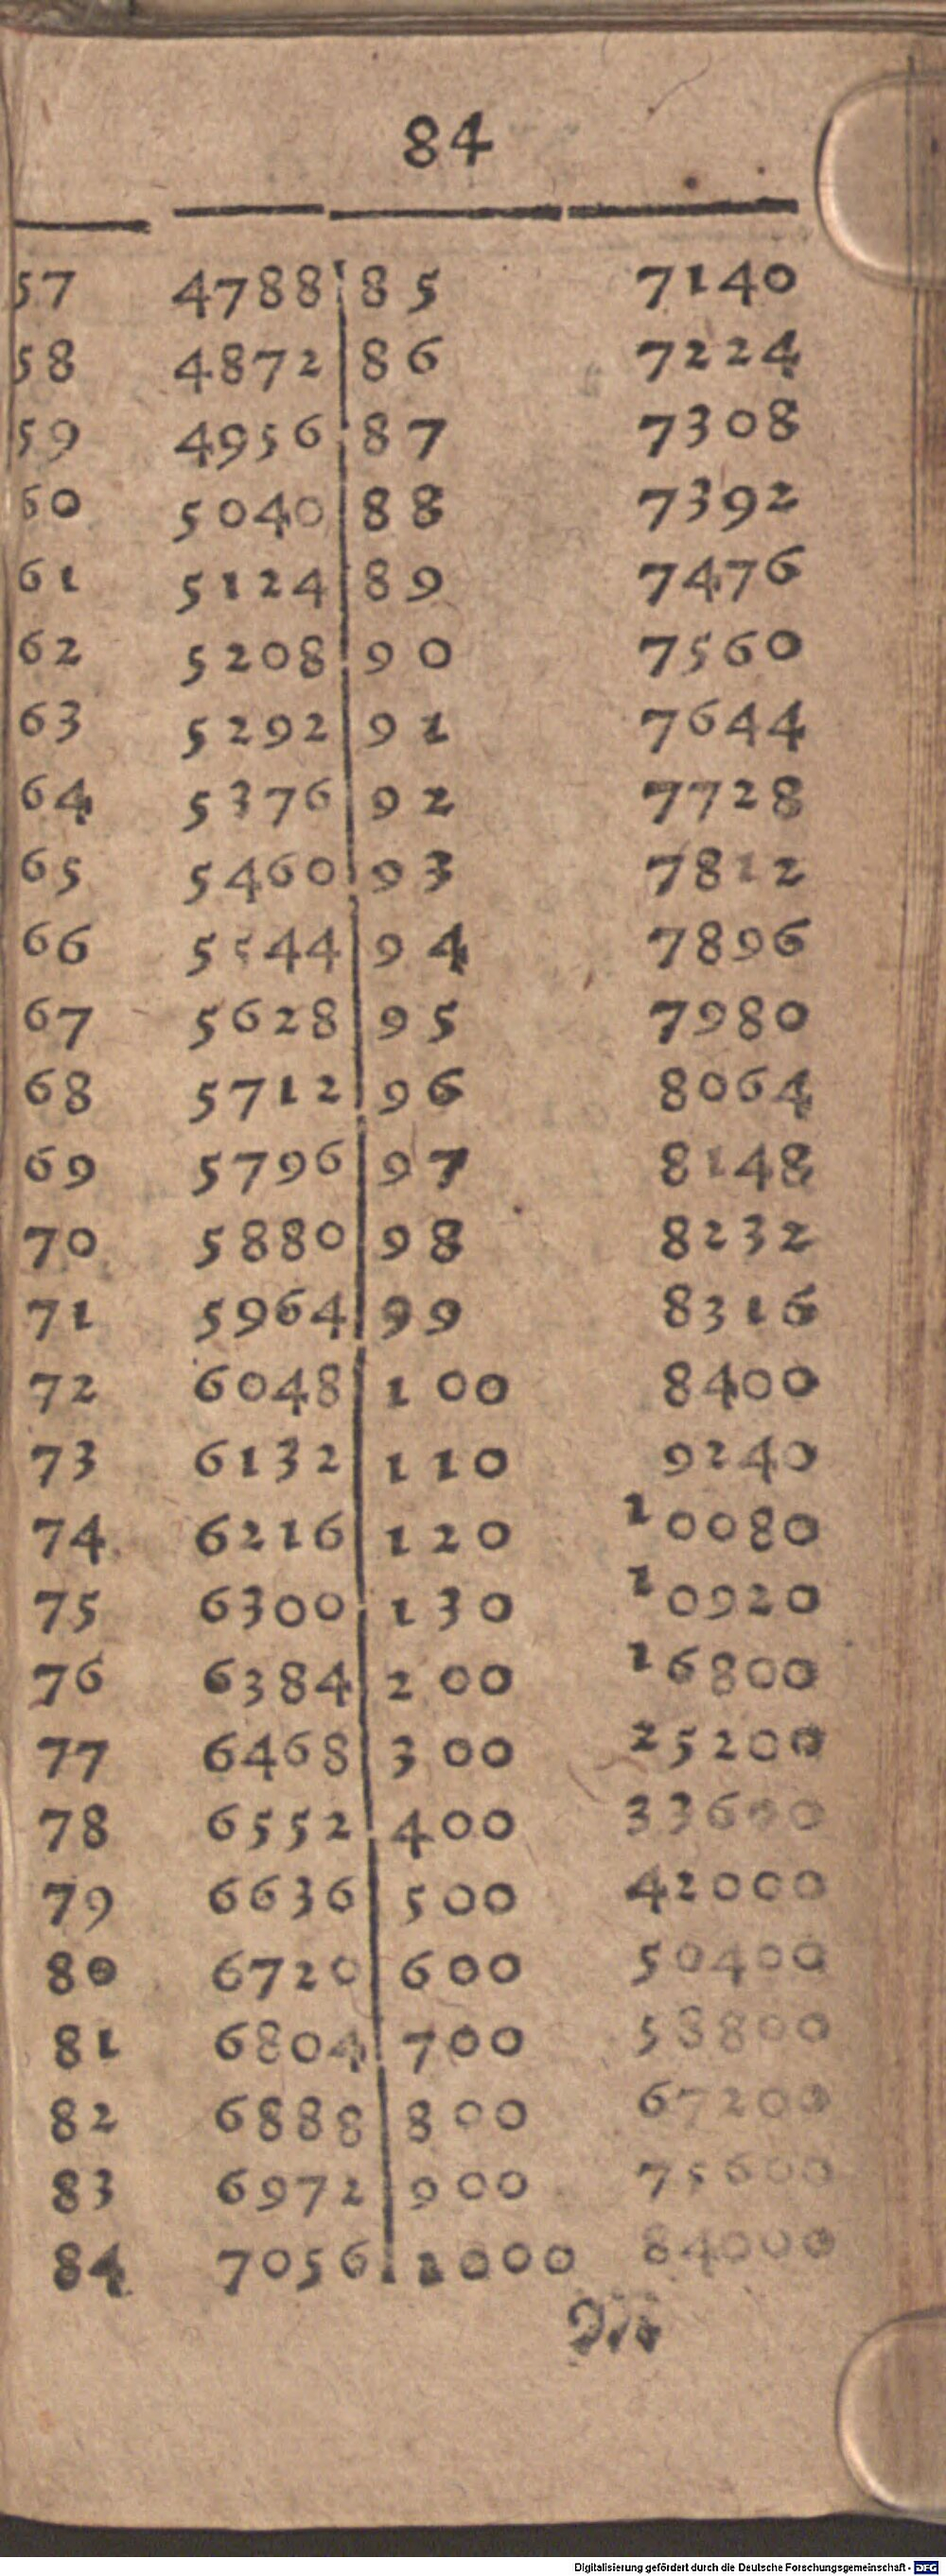 84
57 4788 85 7140
58 4872 86 7224
59 4956 87 7308
60 5040 88 7392
61 5124 89 7476
62 5208 90 7560
63 5292 91 7644
64 5376 92 7728
65 5460 93 7812
66 5544 94 7896
67 5628 95 7980
68 5712 96 8064
69 5796 97 8148
70 5880 98 8232
71 5964 99 8316
72 6048 100 8400
73 6132 110 9240
74 6216 120 10080
75 6300 130 10920
76 6384 200 16800
77 6468 300 25200
78 6552 400 33600
79 6636 500 42000
80 6720 600 50400
81 6804 700 58800
82 6888 800 67200
83 6972 900 75600
84 7056 1000 84000
Digitalisierung gefördert durch die Deutsche Forschungsgemeinschaft - DFG